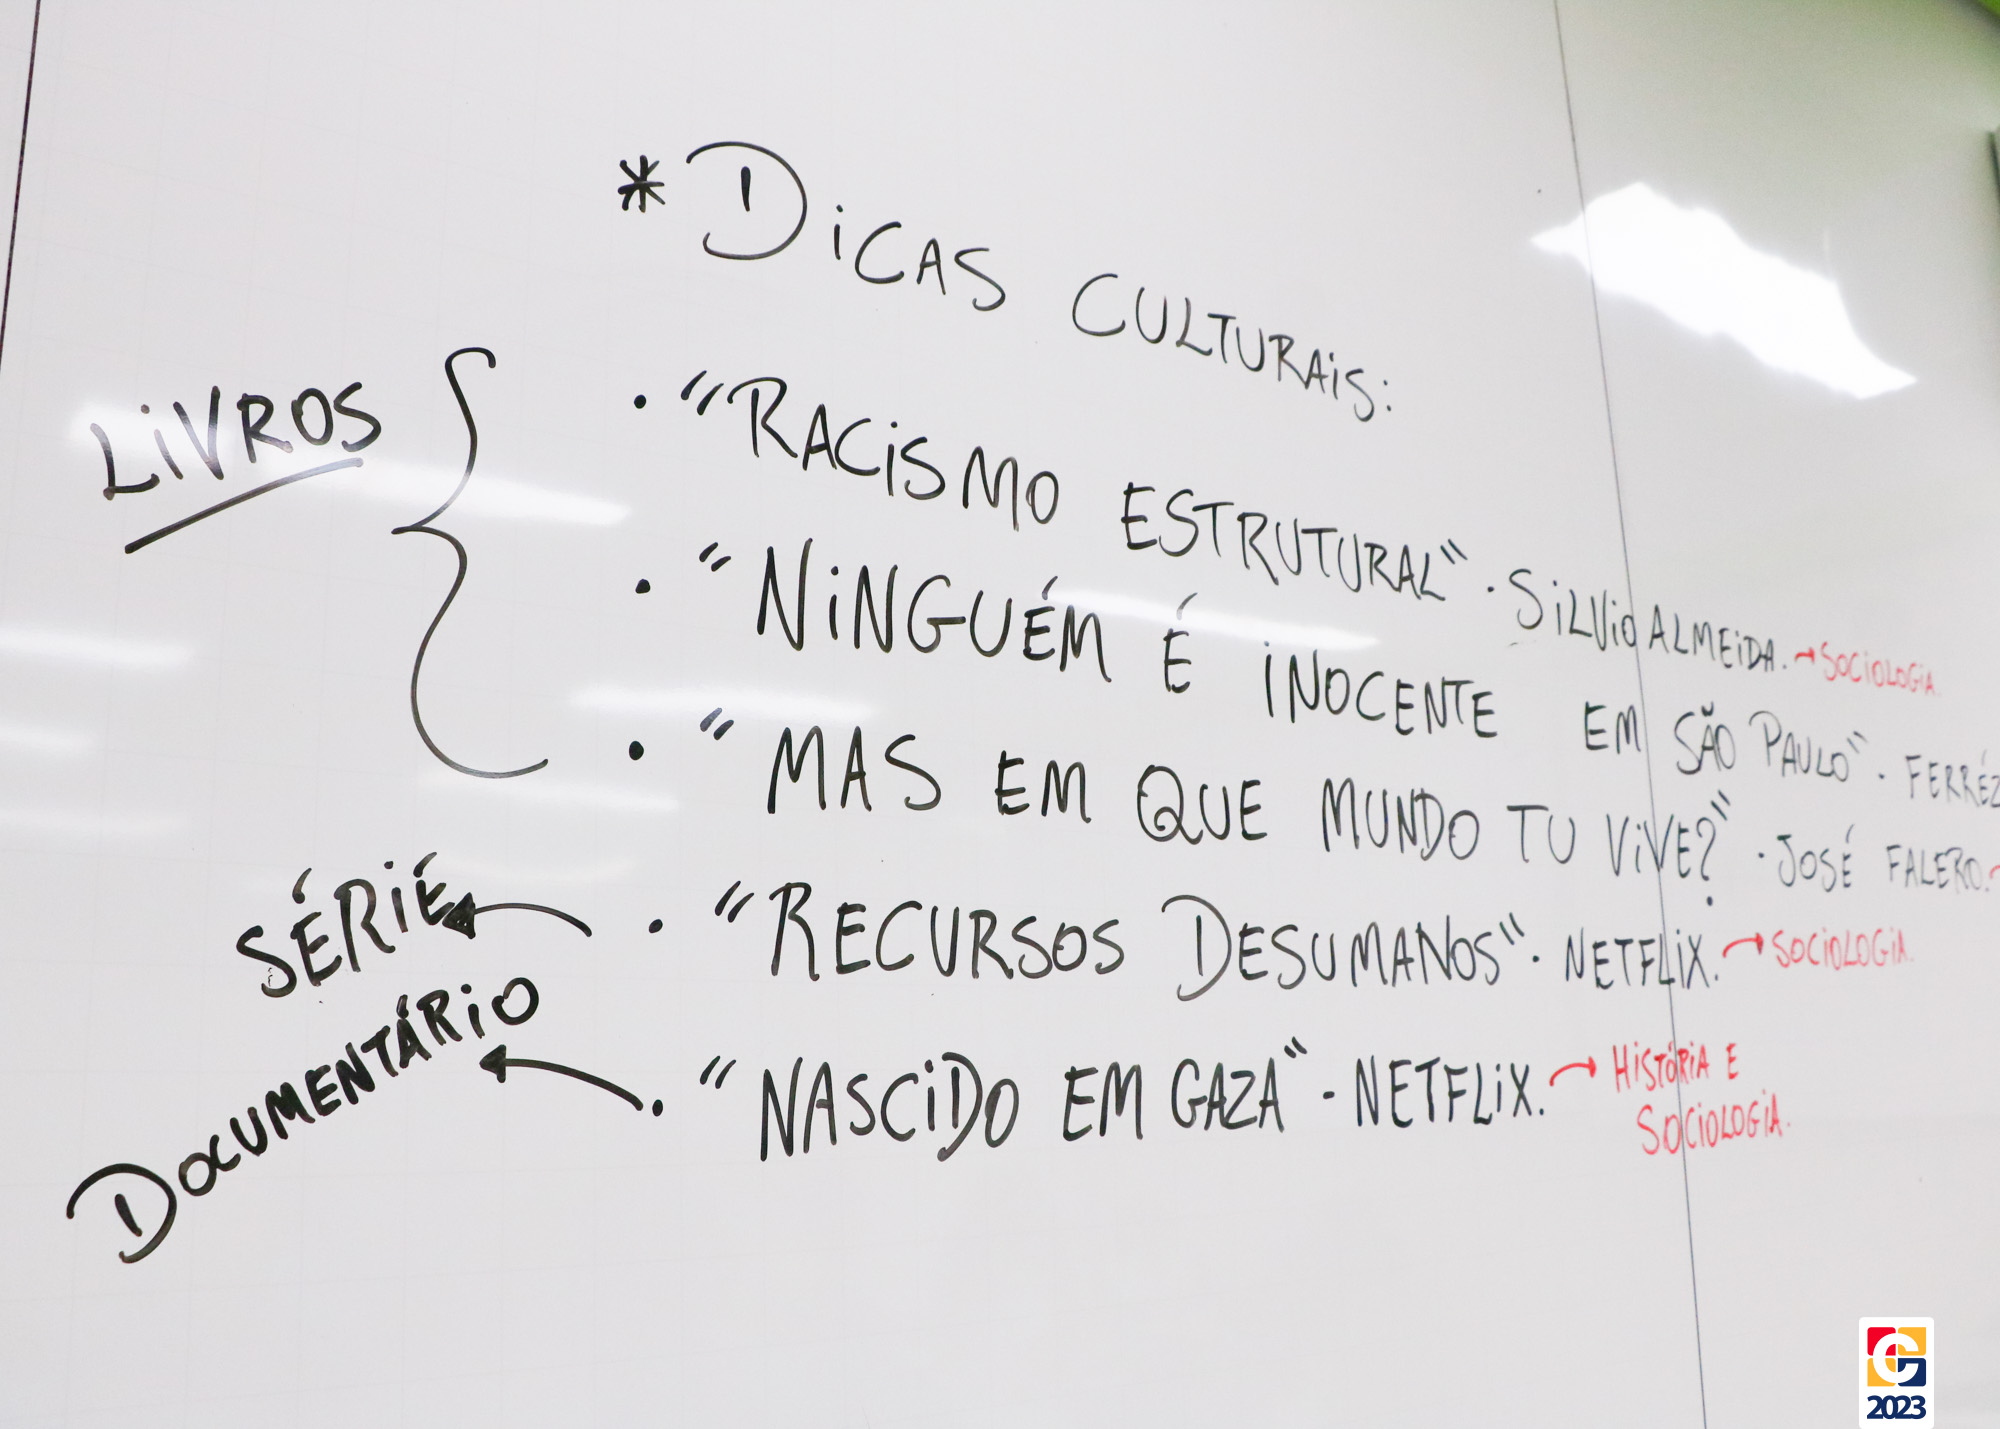 * DiCAS CULTURAiS:
LiVROS
• "RACiSMO ESTRUTURAL" • SiLViO ALMEiDA. → SOCiOLOGiA.
• "NiNGUÉM É iNOCENTE EM SÃO PAULO" • FERRÉZ
• "MAS EM QUE MUNDO TU ViVE?" • JOSÉ FALERO. →
SÉRiE ← • "RECURSOS DESUMANOS" • NETFLiX. → SOCiOLOGiA.
DOCUMENTÁRiO ← • "NASCiDO EM GAZA" - NETFLiX. → HiSTÓRiA E
SOCiOLOGiA.
G
2023